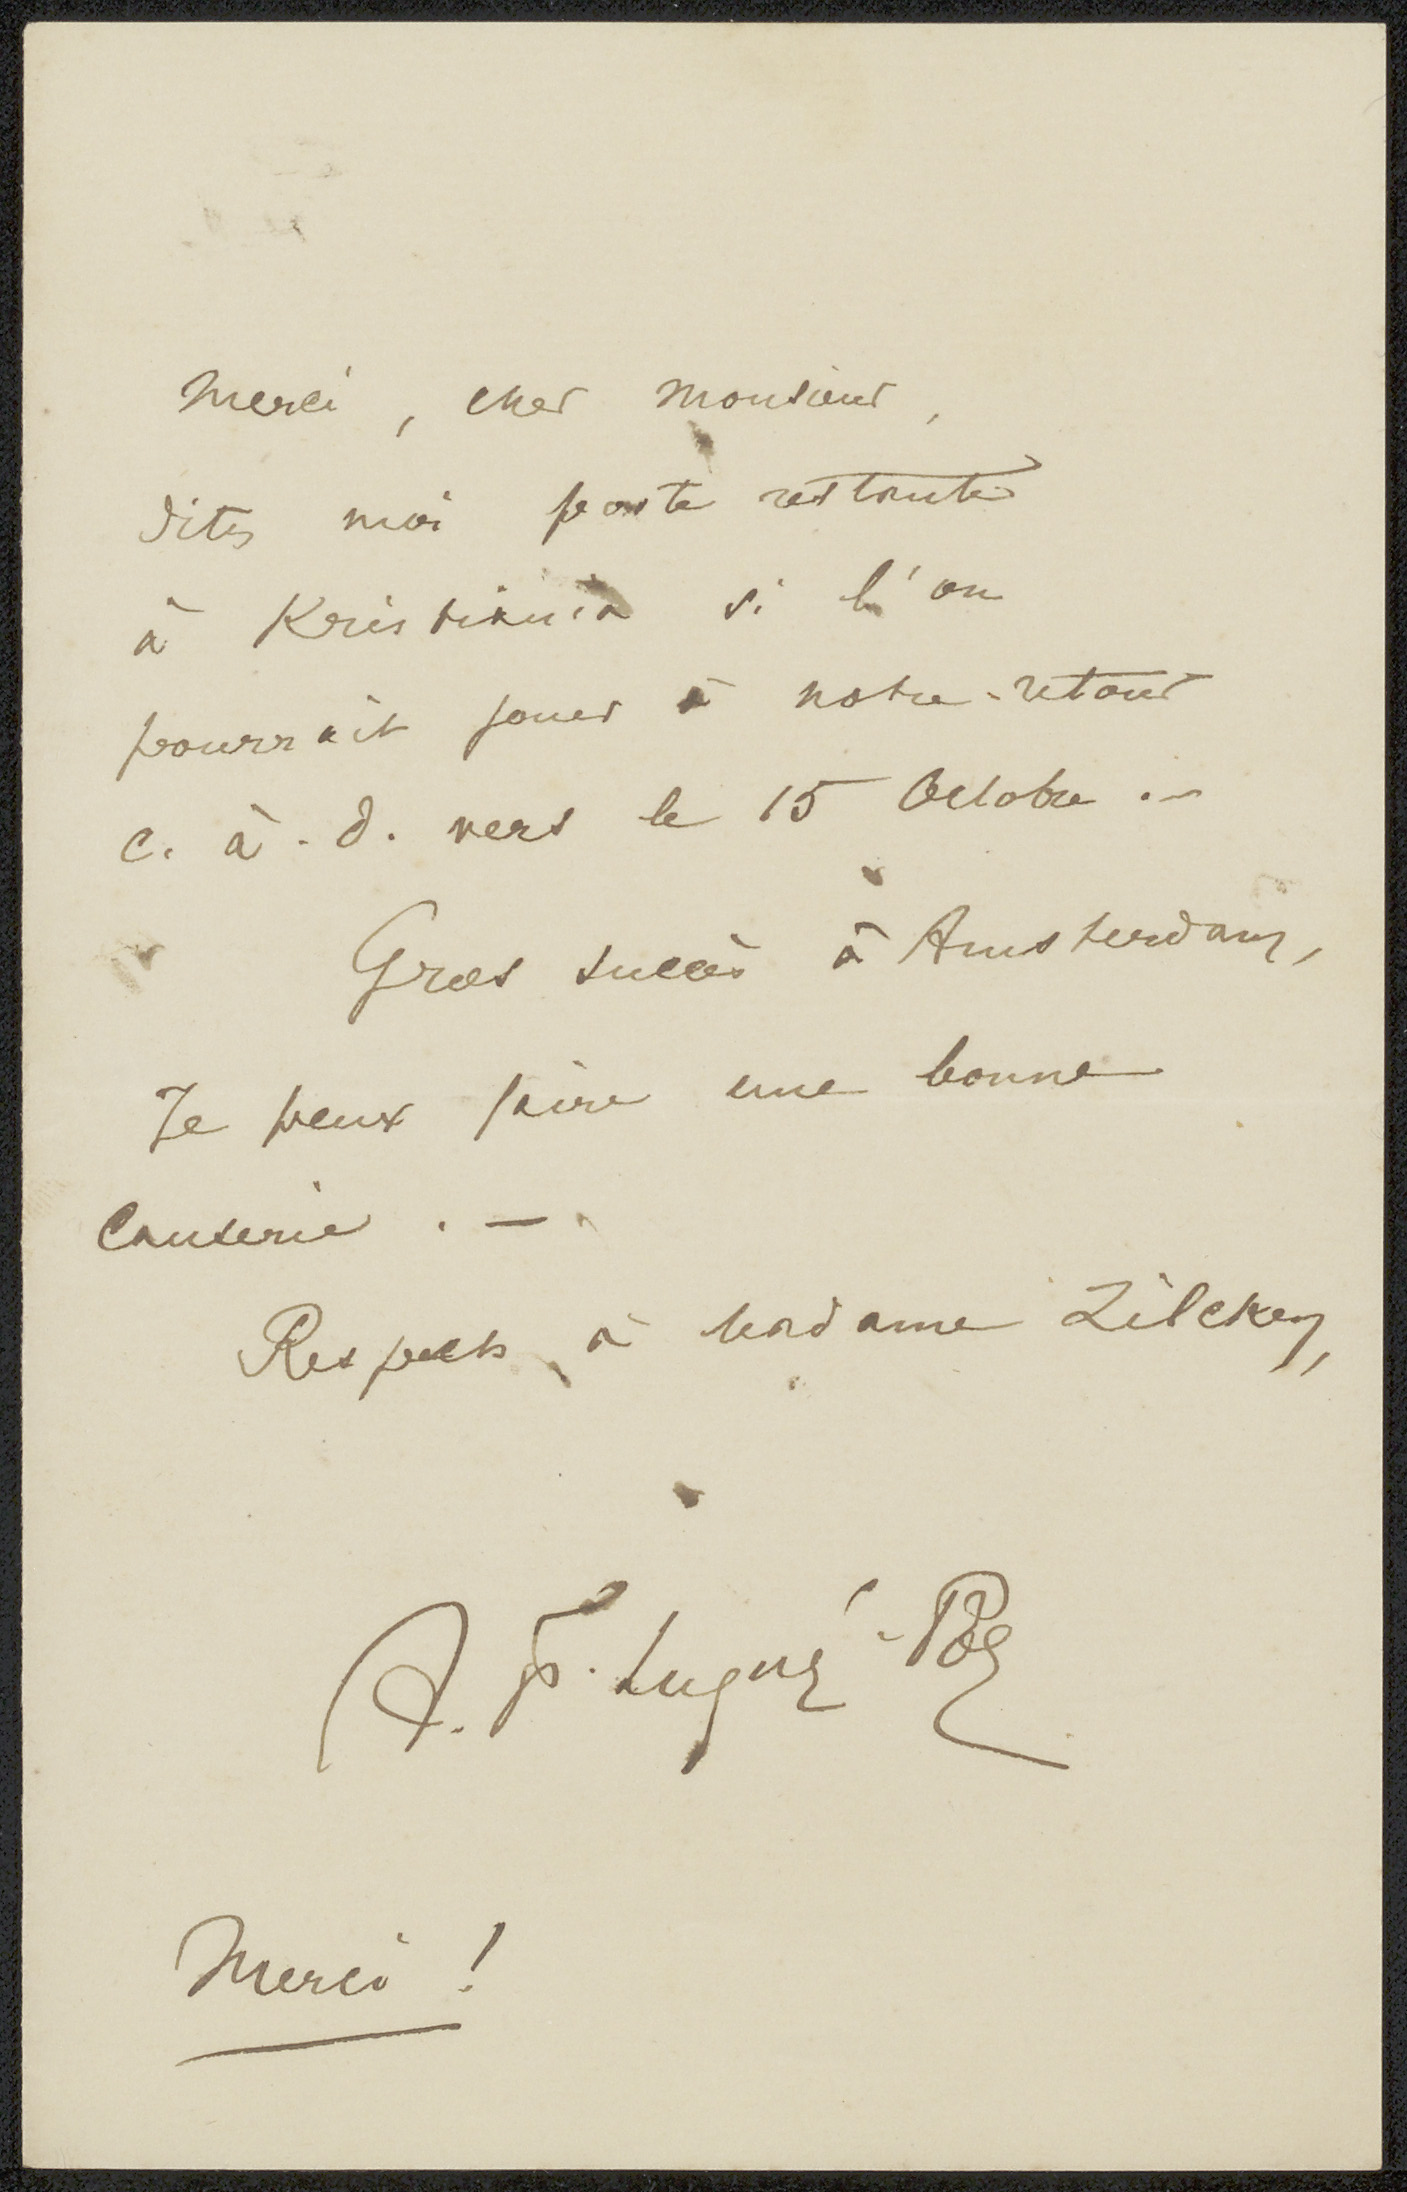 Merci, cher Monsieur,
dites moi poste restante
à Kristiania si l'on
pourrait jouer à notre retour
c. à. d. vers le 15 Octobre. -
Gros succès à Amsterdam,
Je peux faire une bonne
Causerie. -
Respects à Madame Zilcken,
A. F. Lugné-Poe
Merci!